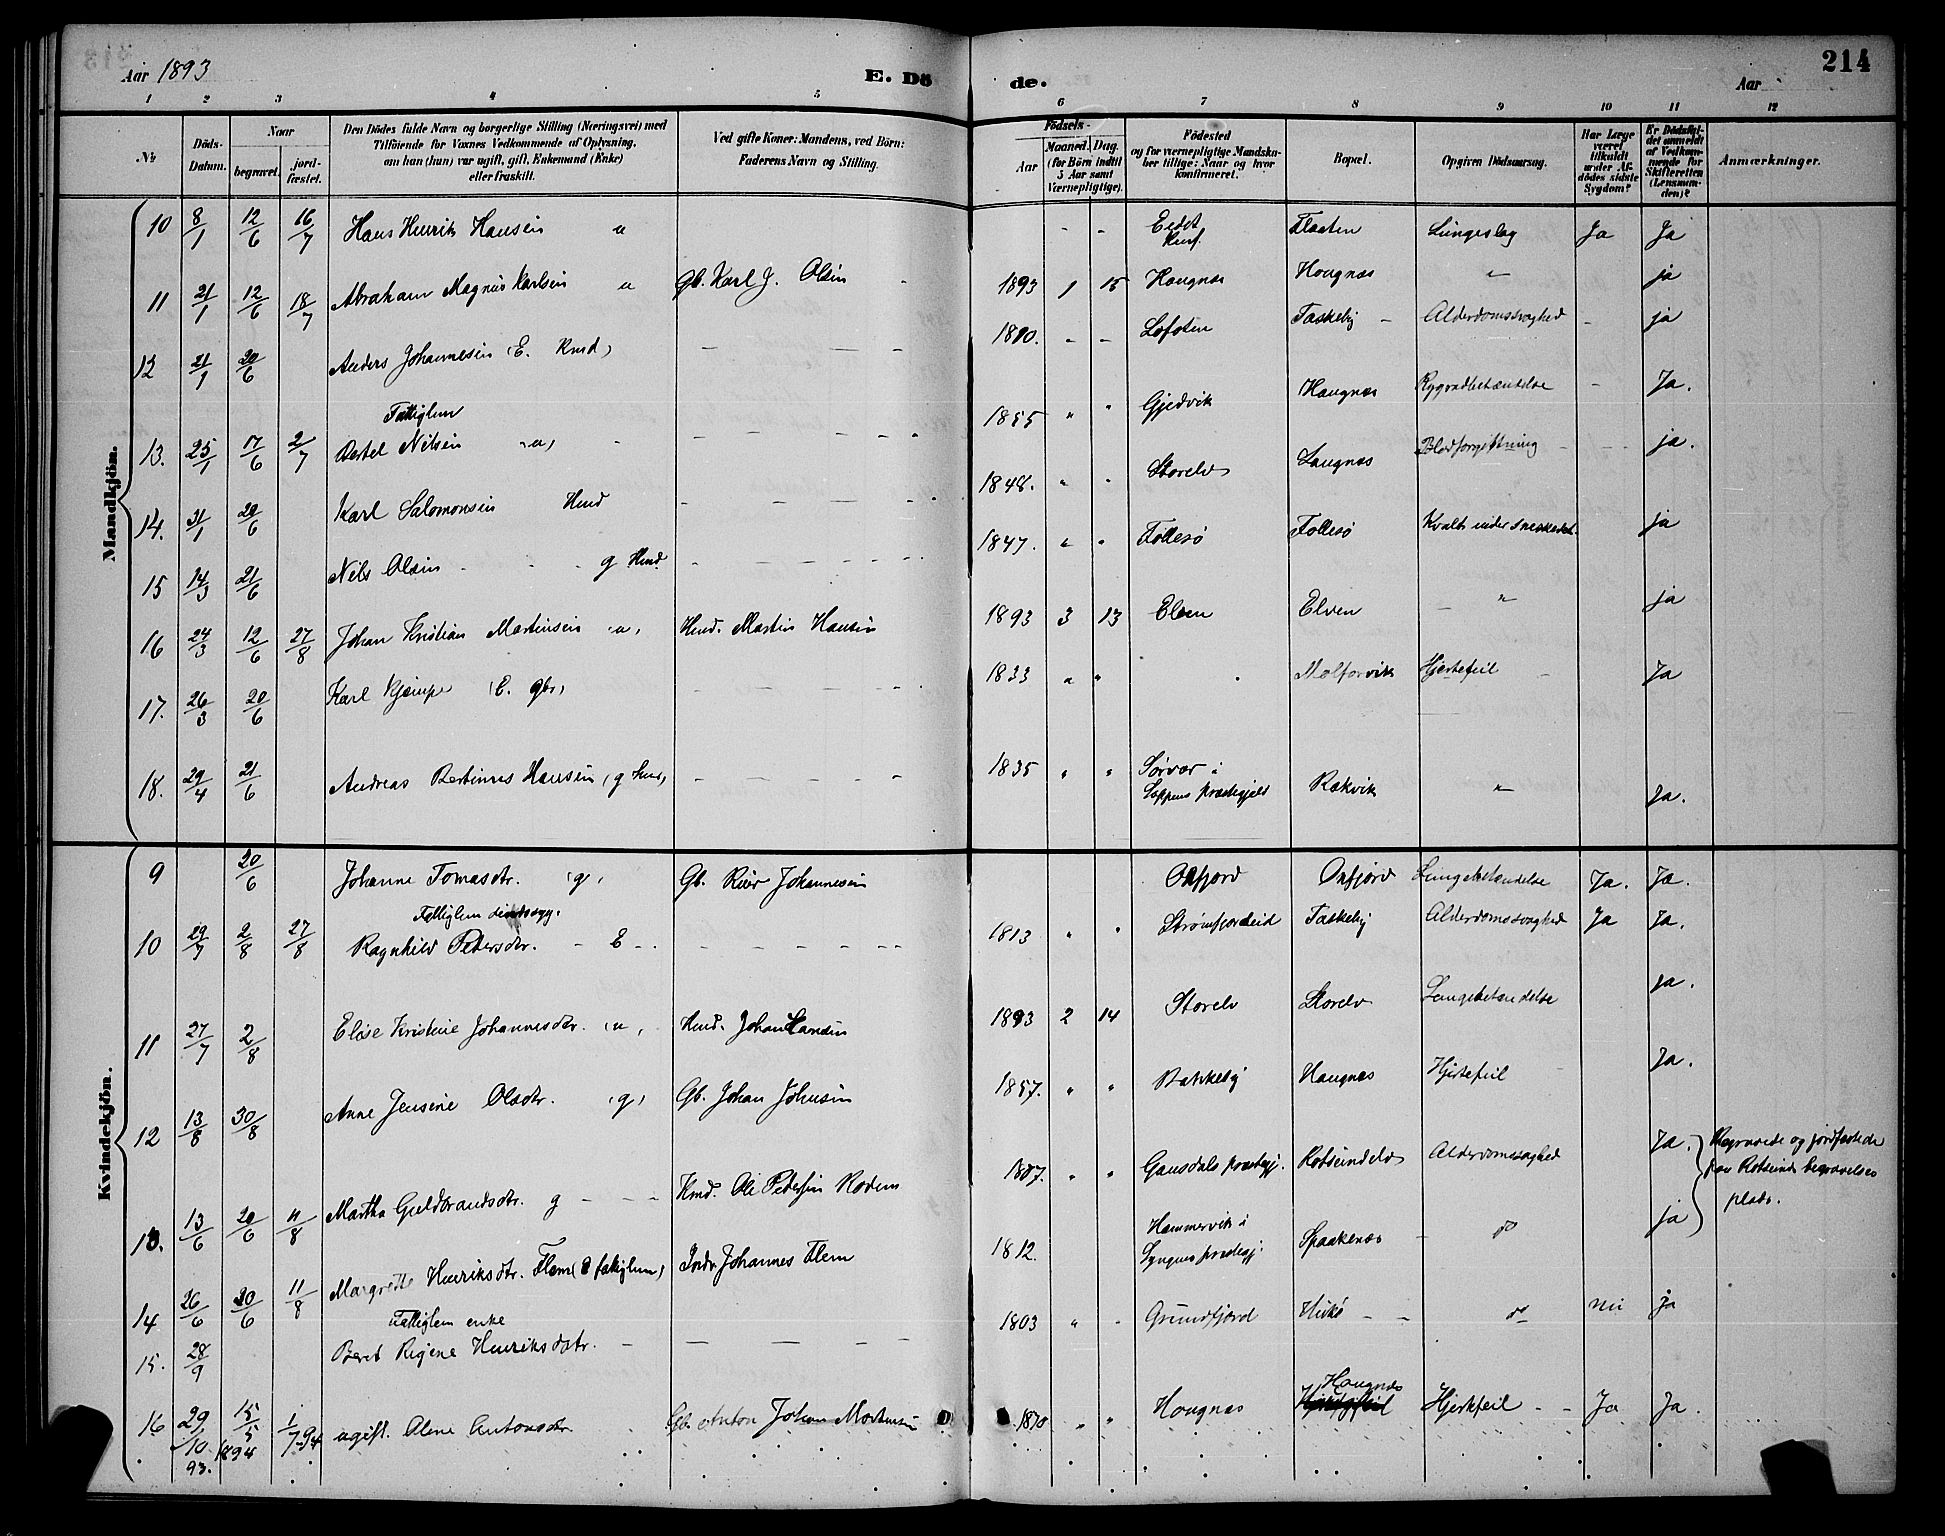 Aar 1893
E. Dö
de.
Aar
214
1 2 3 4 5 6 7 8 9 10 11 12
№
Döds-Datum.
Naar
begravet.
jord-fæstet.
Den Dödes fulde Navn og borgerlige Stilling (Næringsvei) med
Tilföiende for Voxnes Vedkommende af Oplysning,
om han (hun) var ugift, gift, Enkemand (Enke)
eller fraskilt.
Ved gifte Koner: Mandens, ved Börn:
Faderens Navn og Stilling.
Födsels-
Aar
Maaned. Dag.
(for Börn indtil
5 Aar samt
Værnepligtige).
Födested
og for værnepligtige Mandskaber tillige: Naar og hvor
konfirmeret.
Bopæl.
Opgiven Dödsaarsag.
Har Læge været tilkaldt under Afdödes sidste Sygdom?
Er Dödsfaldet anmeldt af Vedkommende for Skifteretten (Lensmanden)?
Anmærkninger.
Mandkjön.
10 8/1 12/6 16/7 Hans Henrik Hansen u - - Flaaten Lungeslag Ja Ja
11 21/1 12/6 18/7 Abraham Magnus Karlsen u Gb. Karl J. Olsen 1893 1 15 Haugnæs Haugnæs " ja
12 21/1 20/6 Anders Johannesen (E. Kmd) - - - 1810. - - Lofoten Taskeby - Alderdomssvaghed - ja
Fattiglem
13. 25/1 17/6 2/7 Bertel Nilsen u, 1855 " " Gjedvik Haugnæs Rygradbetændelse - Ja.
14. 31/1 20/6 Karl Salomonsen Hmd 1848. " " Storelv Laugnæs Blodforgiftning ja.
15 14/3 21/6 Nils Olsen g Hmd. 1847. " " Follesø Follesø Kvalt under sneskred. ja
16 24/3 12/6 27/8 Johan Kristian Martinsen u, Hmd. Martin Hansen 1893 3 13 Elven Elven - " ja
17. 26/3 20/6 Karl Kjempe (E. gbr) 1833 " " Molforvik Hjertefeil - Ja
18. 29/4 21/6 Andreas Bertinus Hansen (g Hmd) 1835 " " Sørvær i
Loppens præstegjeld Rakvik " Ja.
Kvindekjön.
9 20/6 Johanne Tomasdtr. (g, Gb. Reier Johannesen Oxfjord Oxfjord Lungebetændelse Ja. Ja.
Fattiglem
10 29/7 2/8 27/8 Ragnhild Petersdtr. - E - - 1813 " " Strømfjordeid Taskeby Alderdomssvaghed Ja Ja.
11 27/7 2/8 Elise Kristine Johannesdtr. (u, Hmd. Johan 1893 2 14 Storelv Storelv Lungebetændelse Ja.
12 13/8 30/8 Anne Jensine Olsdtr. (g) Gb. Johan Johnsen 1857. " " Bakkeby Haugnæs Hjertefeil Ja.
13. 13/6 20/6 11/8 Martha Guldbrandsdtr. g - - - Hmd. Ole Pedersen Roden 1807. " " Gausdals præstegj. Rotsundelv Alderdomssvaghed Ja. Begravede og jordfæstede
paa Rotsunds begravelses
plads.
14 26/6 20/6 11/8 Margrethe Henriksdtr. Flem (E fattiglem) Indr. Johannes Flem 1812. Hammervik i
Lyngens præstegj. Spaakenæs - do ja
Fattiglem enke
15. 28/9 Beret Regine Henriksdatr. - - - - 1803 " - Grundfjord Hukø - - do nei ja
16 29/10. 93. 15/5 1894 1/7 94 ugift. Aline Antonsdtr. Gb. Anton Johan Mortensen 1870 " " Haugnæs Haugnæs Hjertefeil - - Ja Ja.